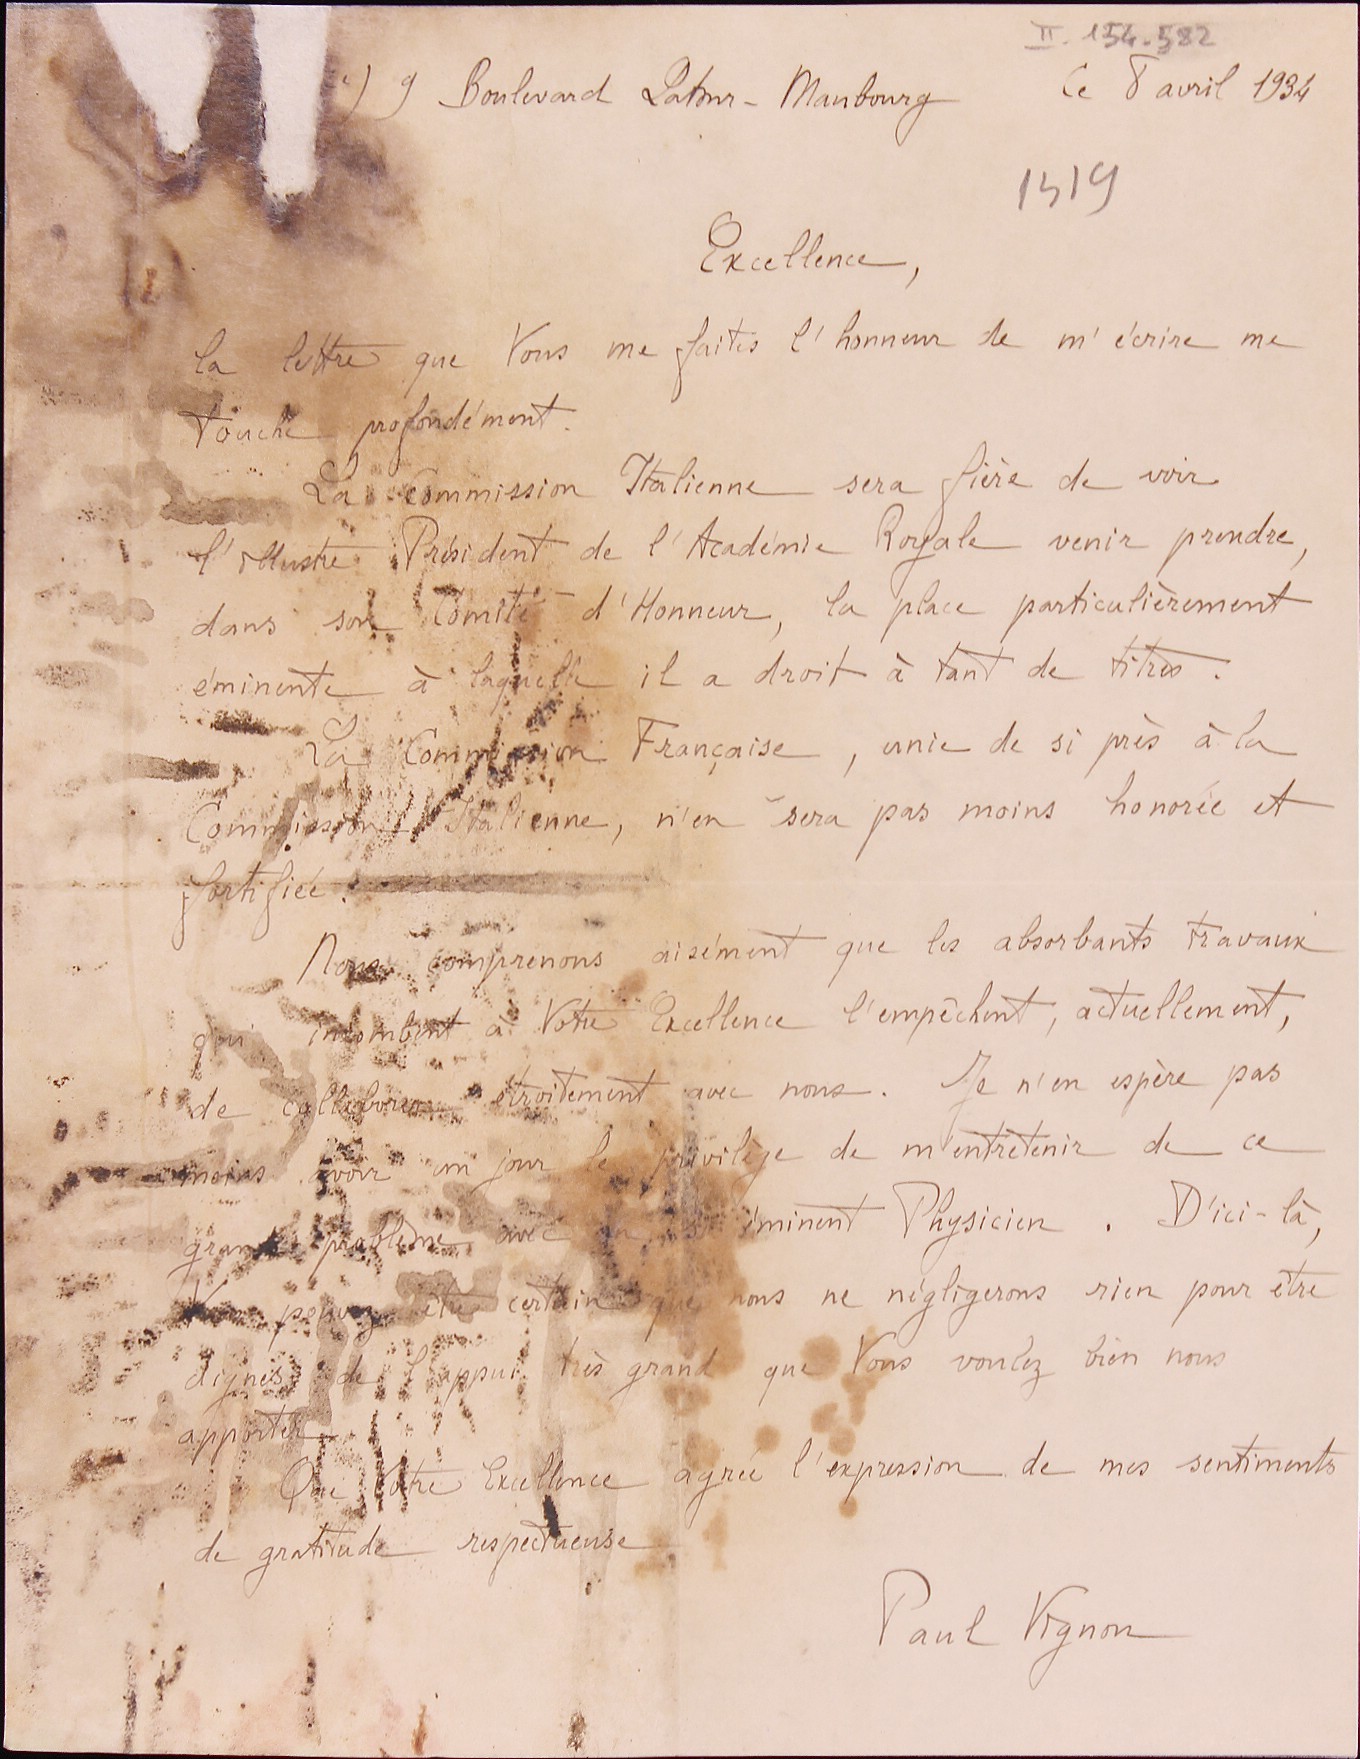 II. 154.582
9 Boulevard Latour-Maubourg Ce 8 avril 1934
1419
Excellence,
la lettre que Vous me faites l'honneur de m'écrire me
touche profondément.
La Commission Italienne sera fière de voir
l'illustre Président de l'Académie Royale venir prendre,
dans son Comité d'Honneur, la place particulièrement
éminente à laquelle il a droit à tant de titres.
La Commission Française, unie de si près à la
Commission Italienne, n'en sera pas moins honorée et
fortifiée.
Nous comprenons aisément que les absorbants travaux
qui incombent à Votre Excellence l'empêchent, actuellement,
de collaborer étroitement avec nous. Je n'en espère pas
moins avoir un jour le privilège de m'entretenir de ce
grand problème avec un éminent Physicien. D'ici-là,
Vous pouvez être certain que nous ne négligerons rien pour être
dignes de l'appui très grand que Vous voulez bien nous
apporter.
Que Votre Excellence agrée l'expression de mes sentiments
de gratitude respectueuse
Paul Vignon